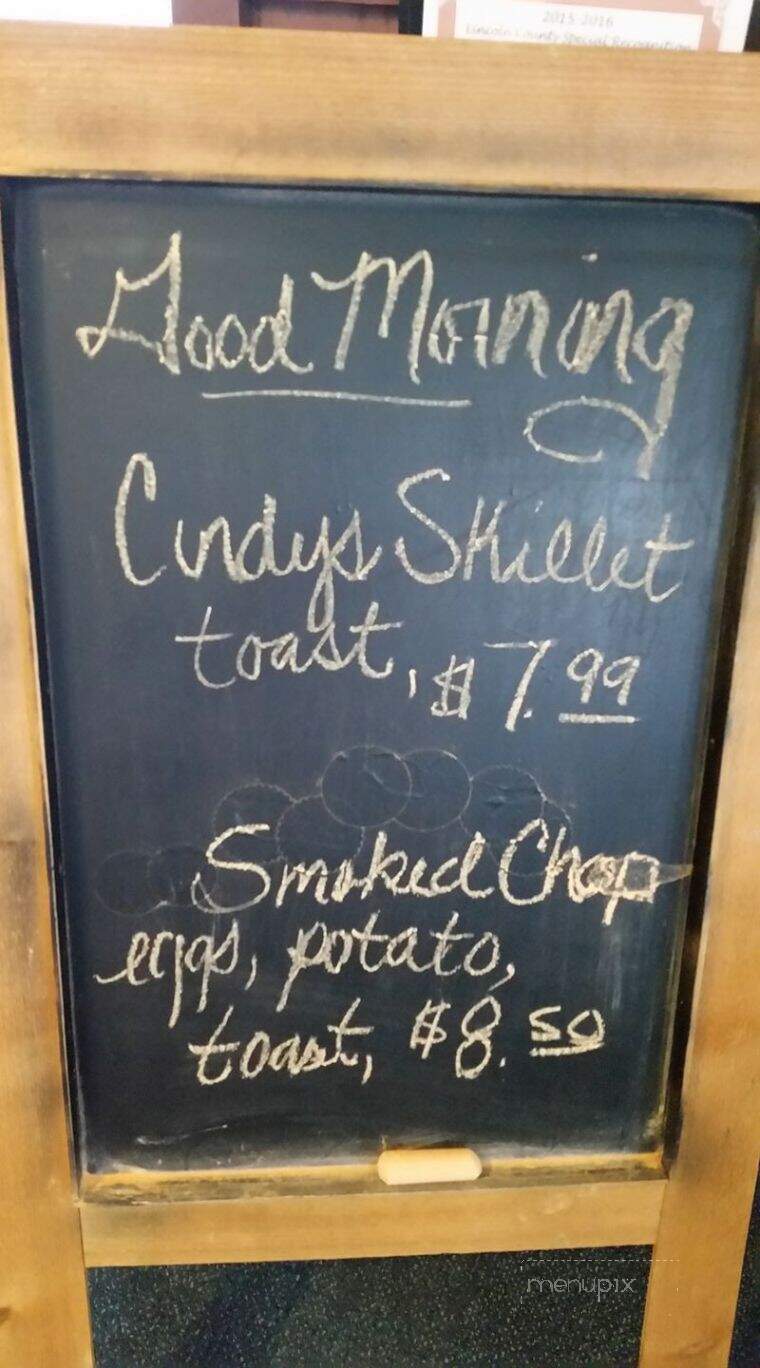 2015-2016
Lincoln County Special Recognition
Good Morning
Cindys Skillet
toast, $7.99
Smoked Chop
eggs, potato,
toast, $8.50
menupix